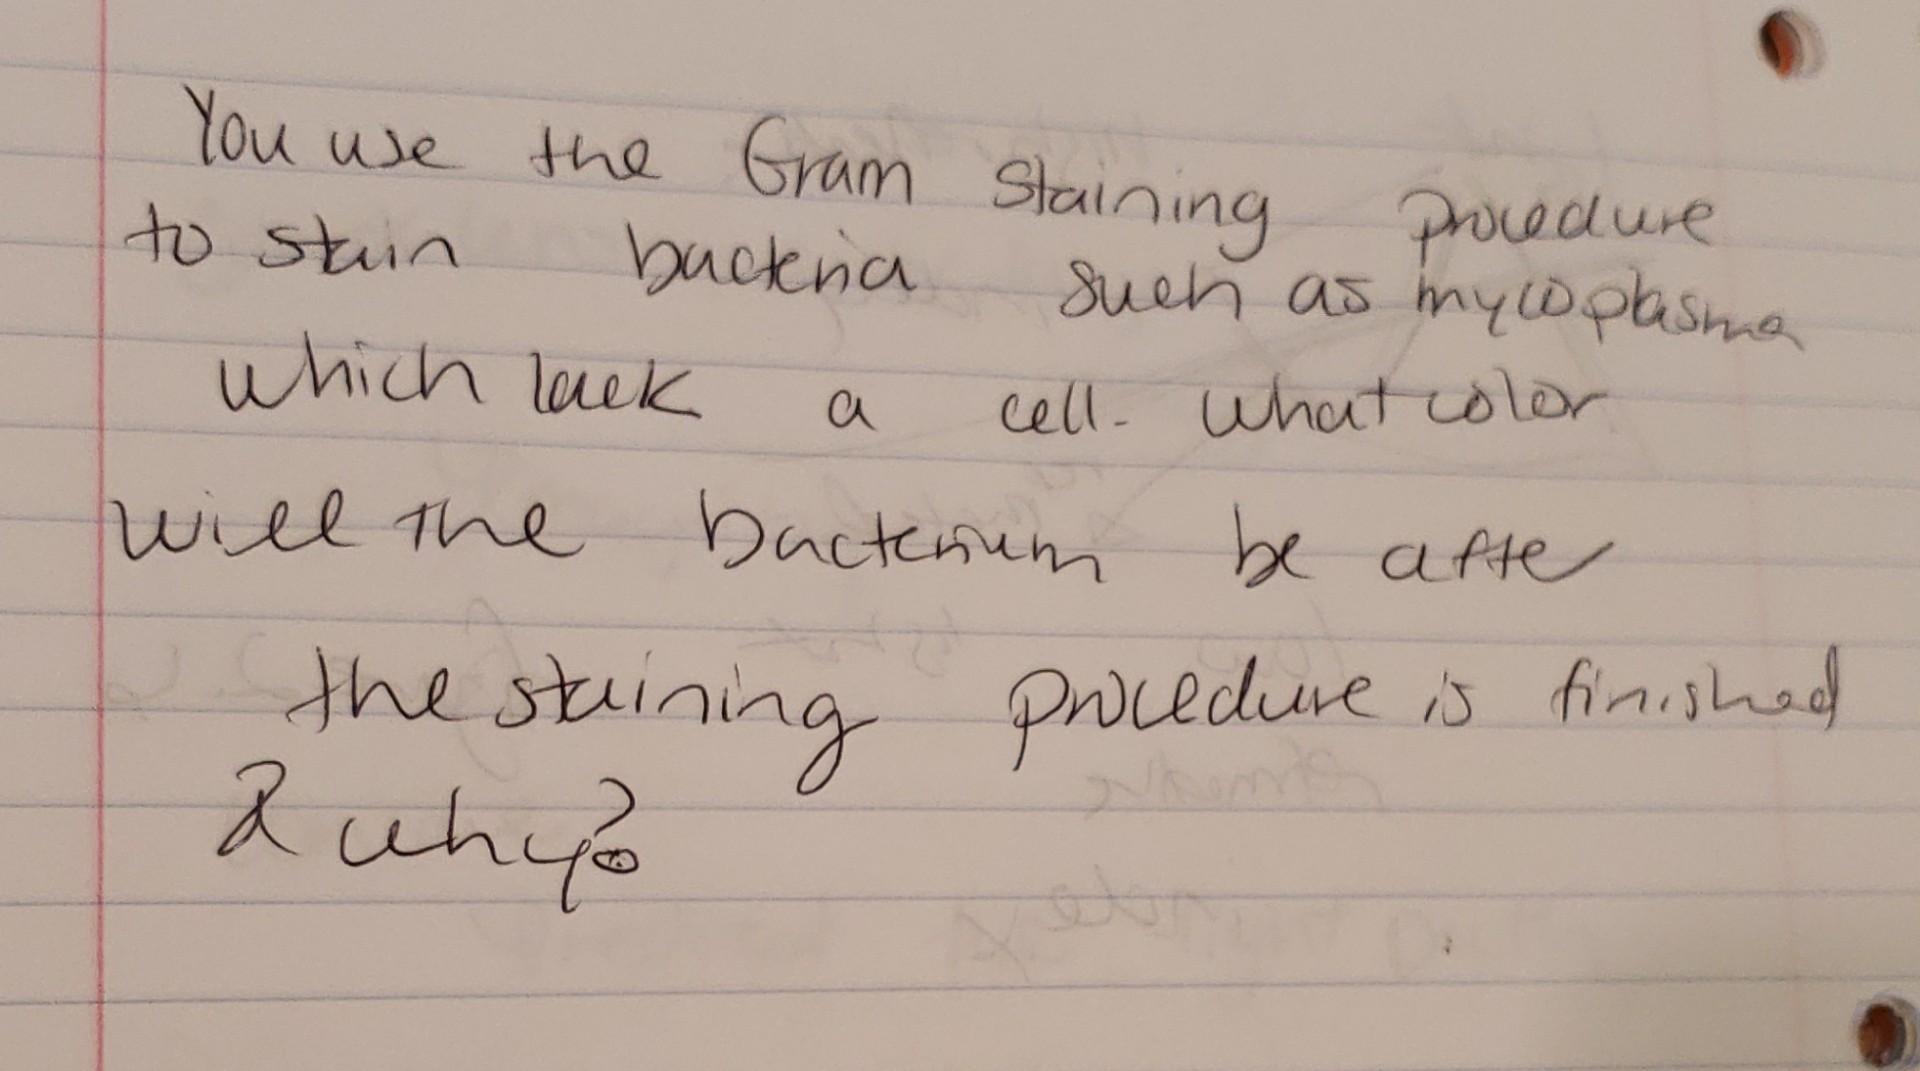 You use the Gram Staining procedure
to stain bacteria such as mycoplasma
which lack a cell. What color
will the bacterium be after
the staining procedure is finished
& why?